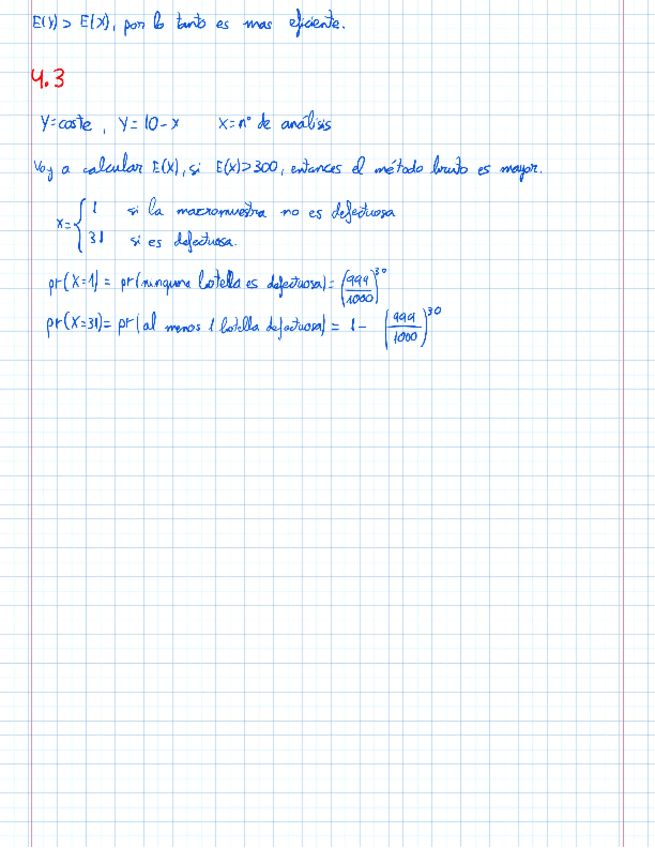 E(Y) > E(X), por lo tanto es mas eficiente.
4.3
Y=coste, Y=10-x X=nº de análisis
Voy a calcular E(X), si E(X)>300, entonces el método bruto es mayor.
x= { 1 si la macromuestra no es defectuosa
31 si es defectuosa.
pr(X=1) = pr(ninguna botella es defectuosa) = (999/1000)^30
pr(X=31) = pr(al menos 1 botella defectuosa) = 1 - (999/1000)^30